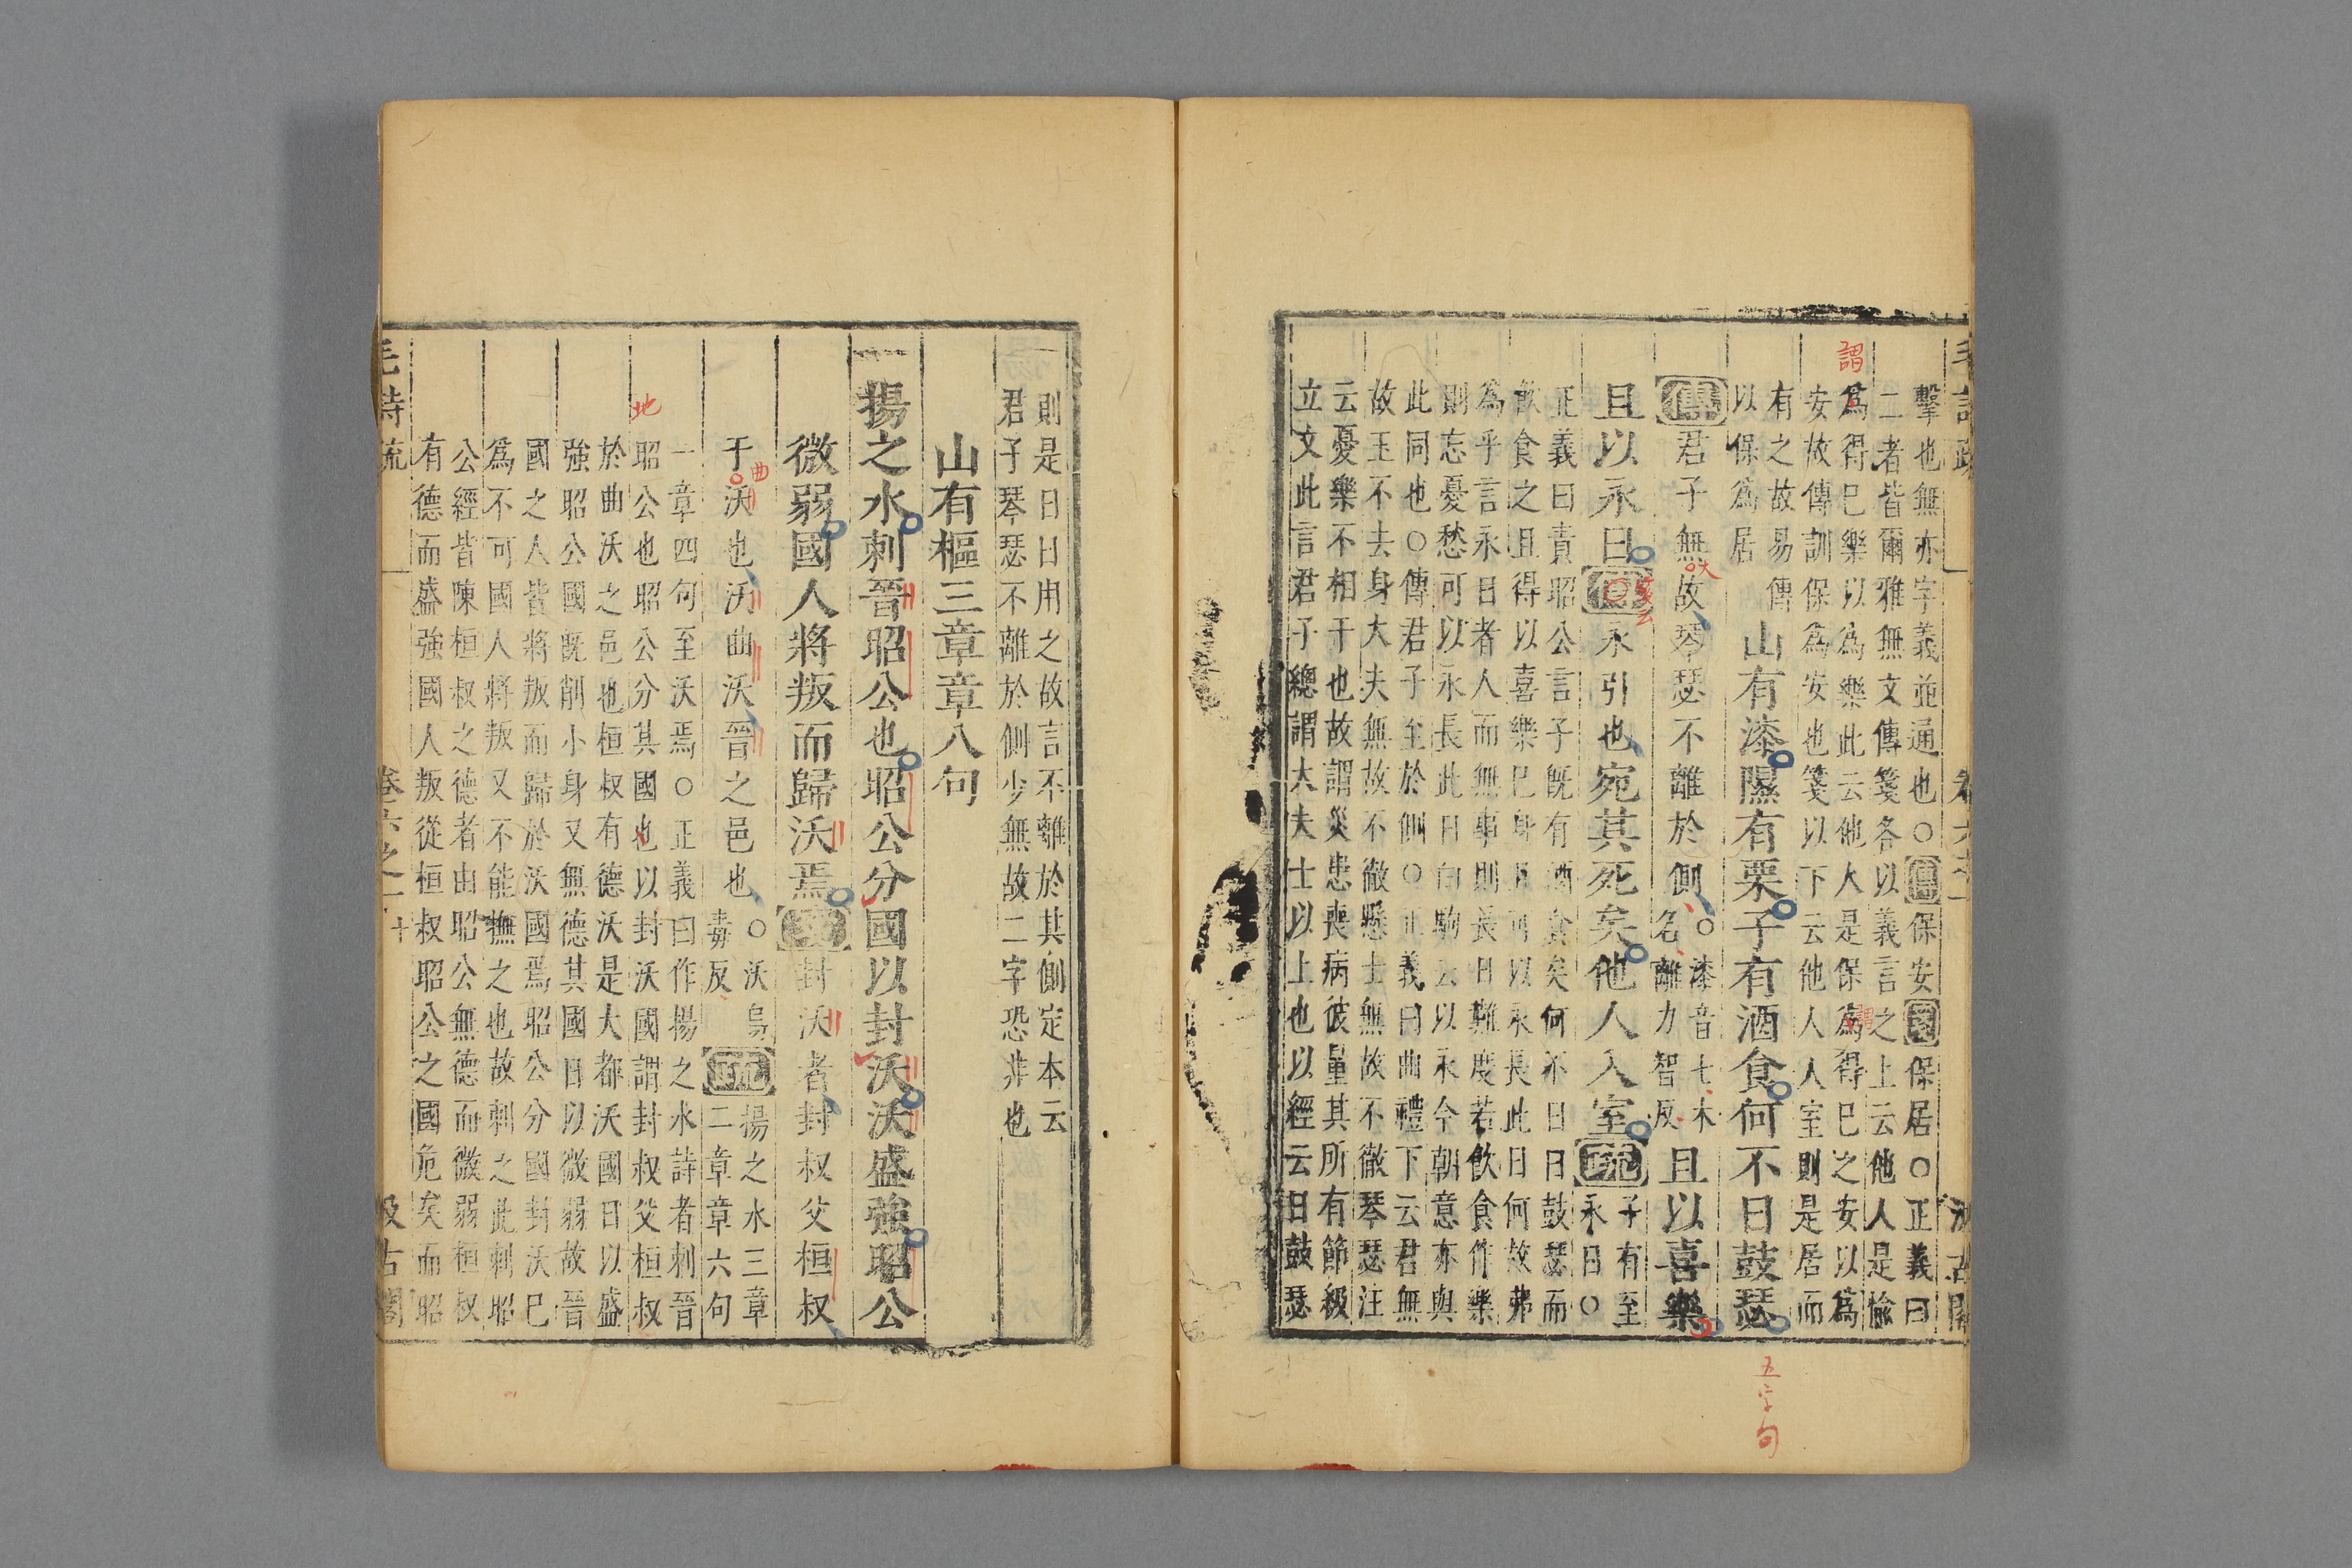 毛詩疏
卷六之一
汲古閣
擊也無亦字義並通也○傳保安箋保居○正義曰
二者皆爾雅無文傳箋各以義言之上云他人是愉
謂
爲得已樂以爲樂此云他人是保爲得已之安以爲
謂
安故傳訓保爲安也箋以下云他人人室則是居而
有之故易傳
以保爲居
山有漆隰有栗子有酒食何不日鼓瑟
五字句
傳君子無故琴瑟不離於側
大
○漆音七木
名離力智反
且以喜樂
且以永日
永引也宛其死矣他人入室疏
子有至
永日○
正義曰責昭公言子既有酒食矣何不日日鼓瑟而
飲食之且得以喜樂已身且可以永長此日何故弗
爲乎言永日者人而無事則長日難度若飲食作樂
則忘憂愁可以永長此日白駒云以永今朝意亦與
此同也○傳君子至於側○正義曰曲禮下云君無
故玉不去身大夫無故不徹懸士無故不徹琴瑟注
云憂樂不相干也故謂災患喪病彼量其所有節級
立文此言君子總謂大夫士以上也以經云日鼓瑟
則是日日用之故言不離於其側定本云
君子琴瑟不離於側少無故二字恐非也
山有樞三章章八句
揚之水刺晉昭公也昭公分國以封沃沃盛強昭公
微弱國人將叛而歸沃焉箋封沃者封叔父桓叔
于沃也沃曲沃晉之邑也
曲
○沃烏
毒反
疏
揚之水三章
二章章六句
一章四句至沃焉○正義曰作揚之水詩者刺晉
地
昭公也昭公分其國也以封沃國謂封叔父桓叔
於曲沃之邑也桓叔有德沃是大都沃國日以盛
強昭公國既削小身又無德其國日以微弱故晉
國之人皆將叛而歸於沃國焉昭公分國封沃已
爲不可國人將叛又不能撫之也故刺之此刺昭
公經皆陳桓叔之德者由昭公無德而微弱桓叔
有德而盛強國人叛從桓叔昭公之國危矣而昭
毛詩疏
卷六之一
十
汲古閣